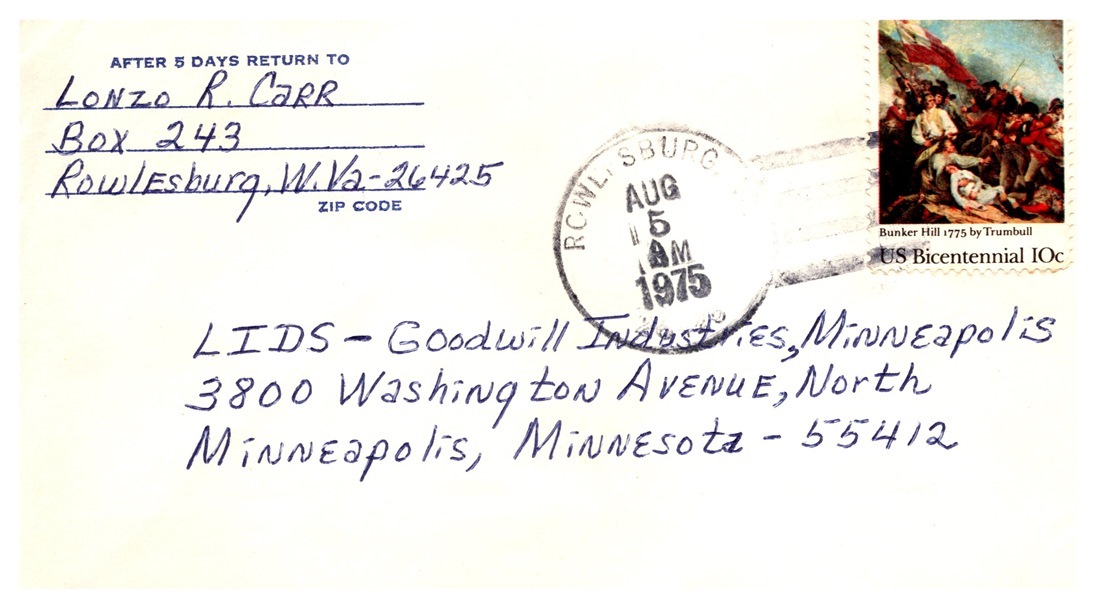 AFTER 5 DAYS RETURN TO
Lonzo R. Carr
Box 243
Rowlesburg, W. Va - 26425
ZIP CODE
ROWLESBURG
AUG
5
AM
1975
Bunker Hill 1775 by Trumbull
US Bicentennial 10c
LIDS - Goodwill Industries, Minneapolis
3800 Washington Avenue, North
Minneapolis, Minnesota - 55412